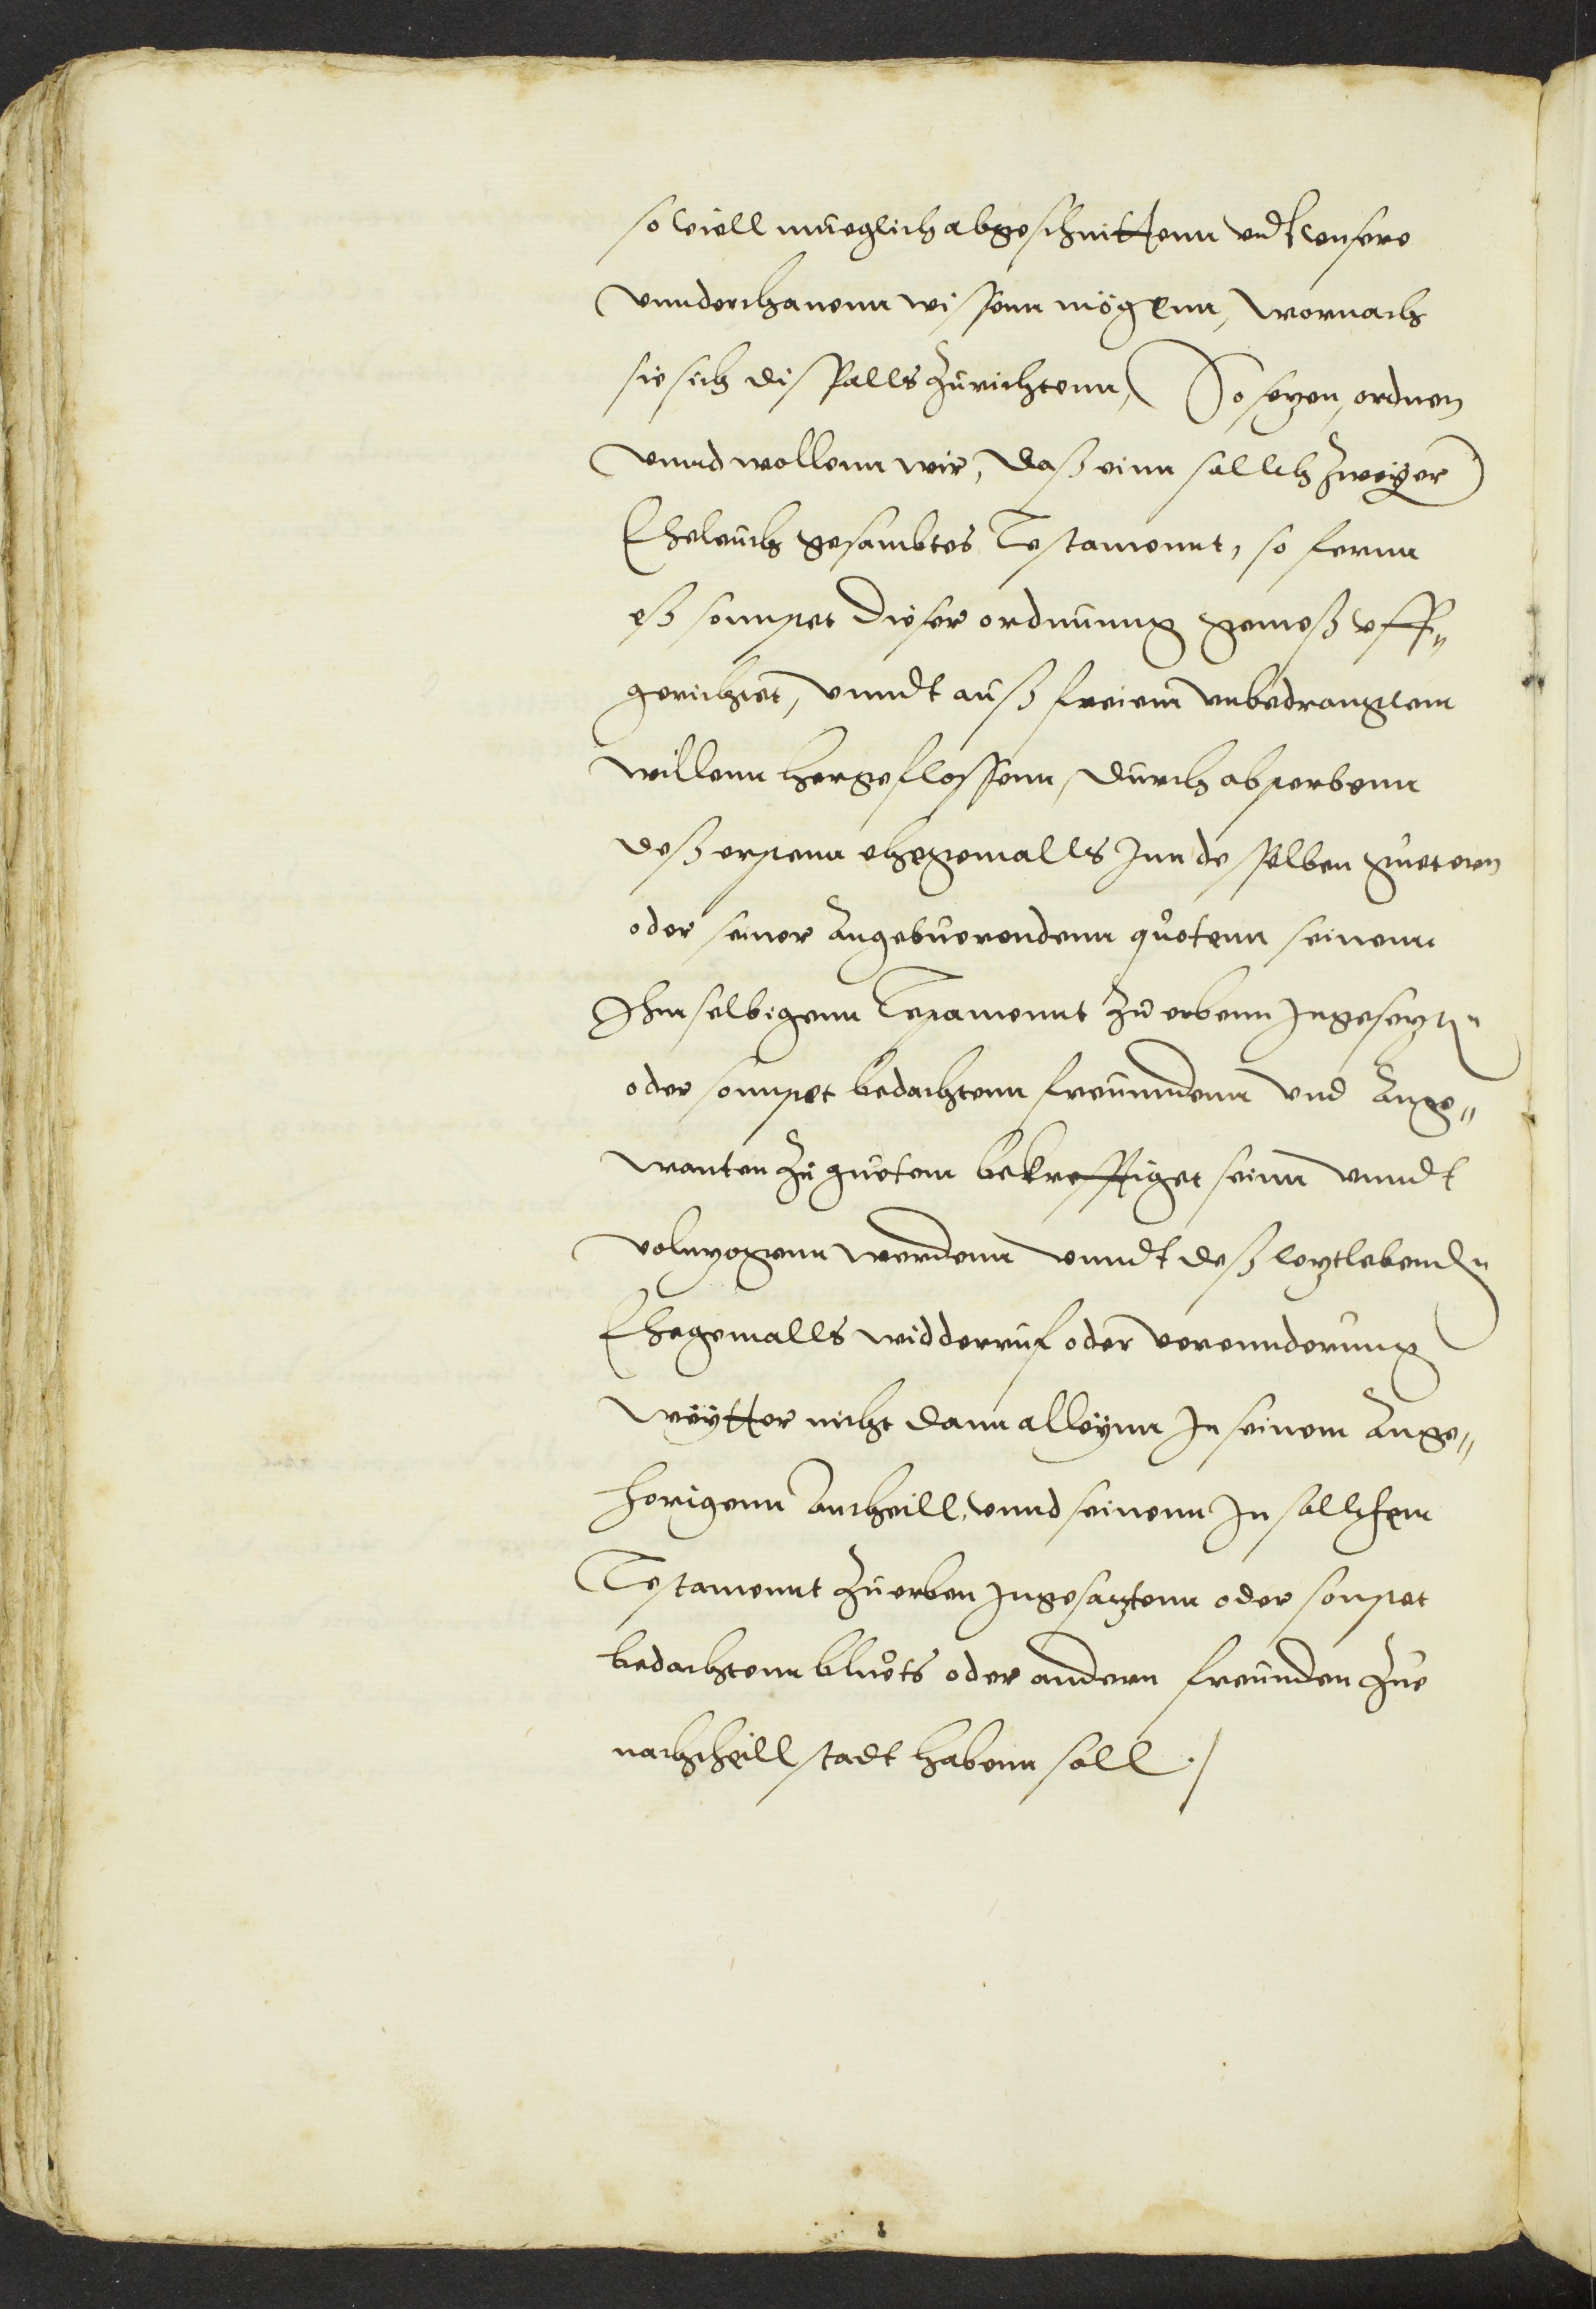 so viell mueglich abgeschnittenn vndt vnsere
vnnderthanenn wissenn mögenn, wornach
sie sich disfalls zurichtenn, So setzen, ordnen
vnnd wollenn wir, daß einn sollch zweyer
Eheleuth gesambtes Testamennt, so fernn
eß sonnset dieser ordnunng gemeß vff„
gerichtet, vnndt auß freiem vnbedrangtem
willenn hergeflossenn, durch absterbenn
deß erstenn ehegemalls Inn desselben guetern
oder seiner angebuerendenn quotenn seinenn
Ihm selbigenn Testamennt zu erbenn Ingesetzten
oder sonnset bedachtenn freunndenn vnd Ange„
wanten zu guotem bekrefftiget seinn vnndt
volnzogenn werdenn vnndt deß letztlebenden
Ehegemalls widderruf oder verennderung
weytter nicht dann alleynn In seinem Ange„
horigenn Antheill, vnnd seinenn In sollchem
Testamennt zu erben Ingesatztenn oder sonset
bedachtenn bluots oder andern freunden zue
nachtheill stadt habenn soll./